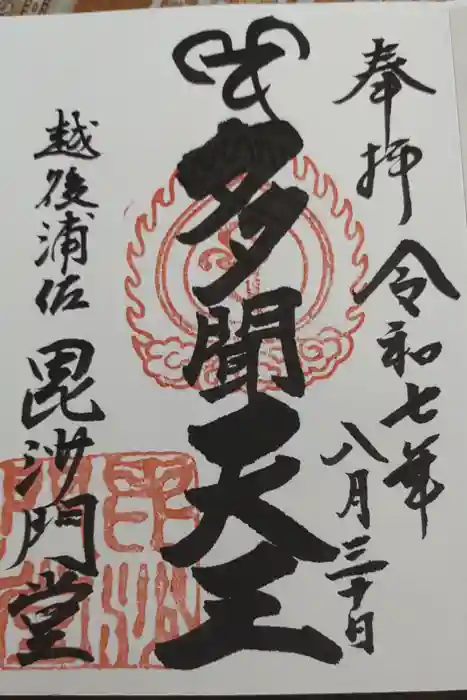 奉拝
令和七年
八月三十日
多聞天王
越後浦佐
毘沙門堂